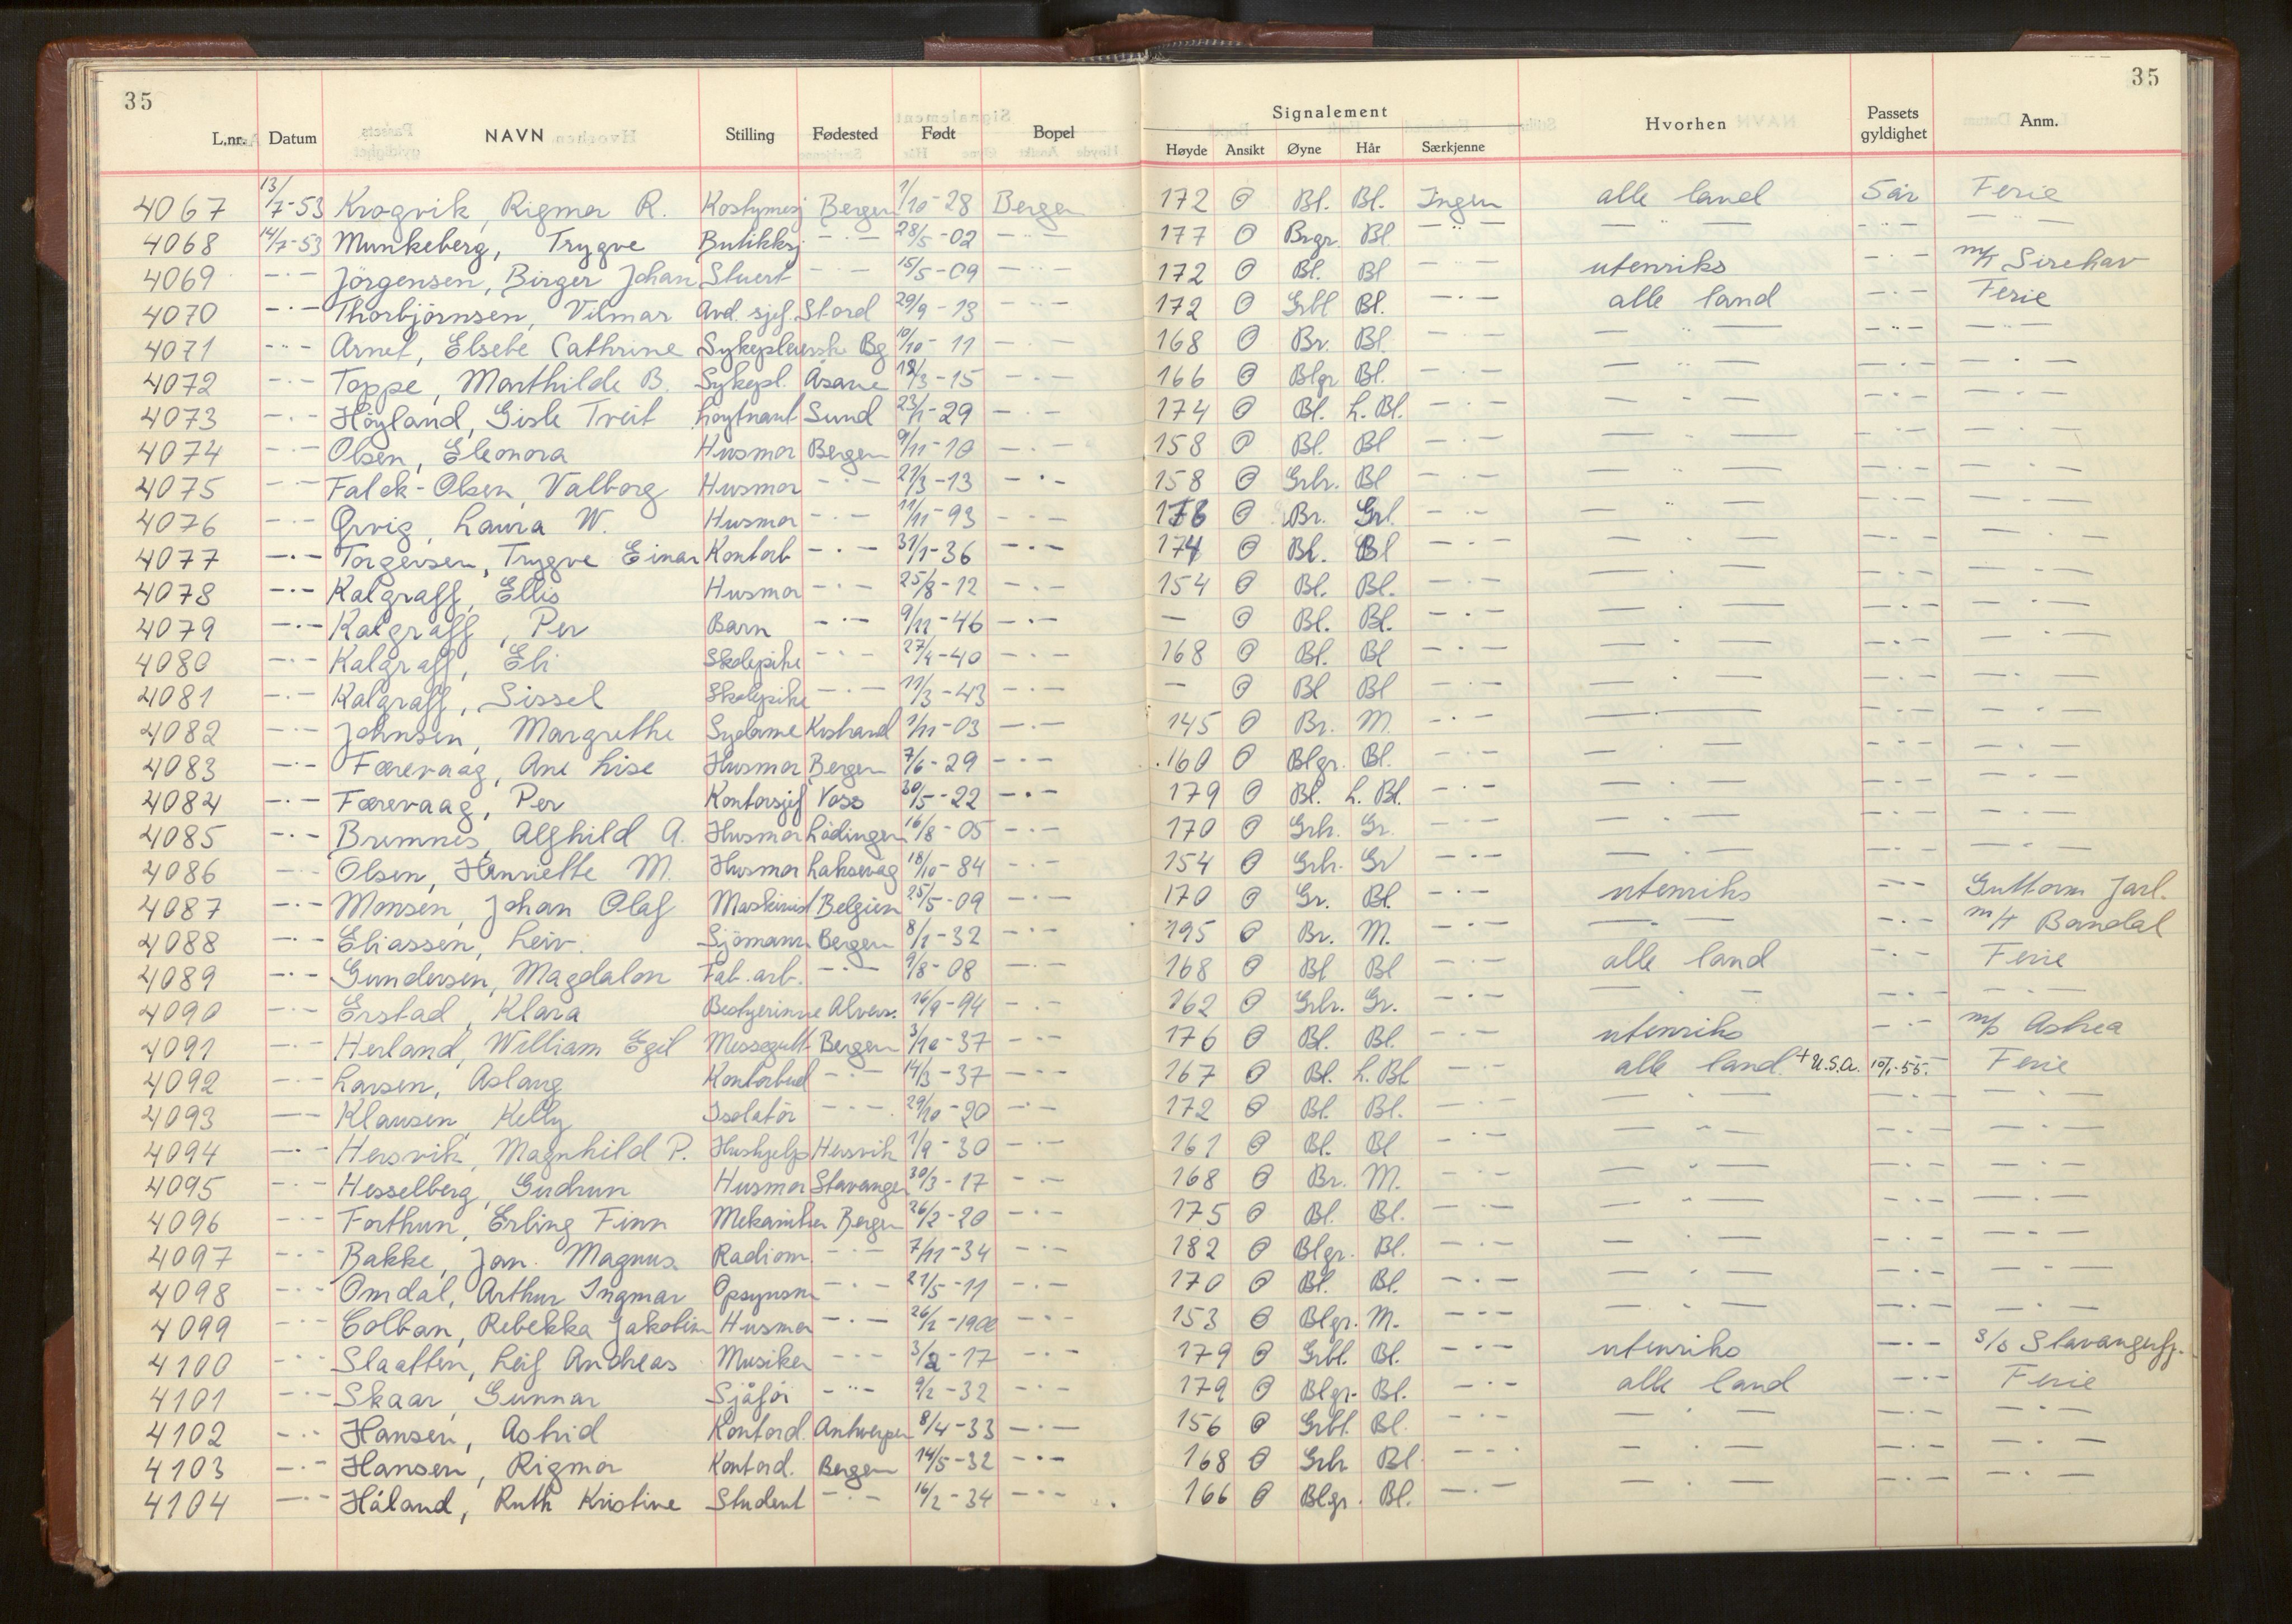 35 35
Signalement
L.nr. Datum NAVN Stilling Fødested Født Bopel Høyde Ansikt Øyne Hår Særkjenne Hvorhen Passets gyldighet Anm.
4067 13/7-53 Krogvik, Rigmor R. Kostymesj Bergen 1/10-28 Bergen 172 O Bl. Bl. Ingen alle land 5 år Ferie
4068 14/7-53 Munkeberg, Trygve Butikksj -"- 28/5-02 -"- 177 O Brgr. Bl -"- -"- -"-
4069 -"- Jörgensen, Birger Johan Stuert -"- 15/5-09 -"- 172 O Bl. Bl -"- utenriks -"- m/t Sirehav
4070 -"- Thorbjörnsen, Vilmar Avd. sjef. Stord 29/9-13 -"- 172 O Grbl Bl. -"- alle land -"- Ferie
4071 -"- Arnet, Elsebe Cathrine Sykepleiersk Bg 10/10-11 -"- 168 O Br. Bl. -"- -"- -"- -"-
4072 -"- Toppe, Marthilde B. Sykepl. Åsane /3-15 -"- 166 O Blgr Bl. -"- -"- -"- -"-
4073 -"- Höyland, Gisle Tveit Löytnant Sund 23/1-29 -"- 174 O Bl. L. Bl. -"- -"- -"- -"-
4074 -"- Olsen, Eleonora Husmor Bergen 9/11-10 -"- 158 O Bl. Bl -"- -"- -"- -"-
4075 -"- Falck-Olsen, Valborg Husmor -"- 21/3-13 -"- 158 O Grbr. Bl -"- -"- -"- -"-
4076 -"- Ørvig, Laura W. Husmor -"- 11/11-93 -"- O Br. -"- -"- -"- -"-
4077 -"- Torgersen, Trygve Einar Kontorb -"- 31/1-36 -"- 174 O Bl. Bl -"- -"- -"- -"-
4078 -"- Kalgraff, Ellis Husmor -"- 25/8-12 -"- 154 O Bl. Bl. -"- -"- -"- -"-
4079 -"- Kalgraff, Per Barn -"- 9/11-46 -"- — O Bl. Bl. -"- -"- -"- -"-
4080 -"- Kalgraff, Eli Skolepike -"- 27/4-40 -"- 168 O Bl. Bl -"- -"- -"- -"-
4081 -"- Kalgraff, Sissel Skolepike -"- 11/3-43 -"- — O Bl Bl -"- -"- -"- -"-
4082 -"- Johnsen, Margrethe Sydame Krshand 1/11-03 -"- 145 O Br. M. -"- -"- -"- -"-
4083 -"- Færevaag, Ane Lise Husmor Bergen 7/6-29 -"- 160 O Blgr. Bl. -"- -"- -"- -"-
4084 -"- Færevaag, Per Kontorsjef Voss 30/5-22 -"- 179 O Bl. L. Bl. -"- -"- -"- -"-
4085 -"- Bremnes, Alghild A. Husmor Lödingen 16/8-05 -"- 170 O Grbr. Gr. -"- -"- -"- -"-
4086 -"- Olsen, Henriette M. Husmor Laksevåg 18/10-84 -"- 154 O Grbr. Gr -"- -"- -"- -"-
4087 -"- Monsen, Johan Olaf Maskinist Belgien 25/5-09 -"- 170 O Gr. Bl. -"- utenriks -"- Guttorm Jarl.
4088 -"- Eliassen, Leiv. Sjömann Bergen 8/1-32 -"- 195 O Br. M. -"- -"- -"- m/t Bandal
4089 -"- Gundersen, Magdalon Fab. arb. -"- 9/8-08 -"- 168 O Bl Bl -"- alle land -"- Ferie
4090 -"- Erstad, Klara Bestyerinne Alvers. 16/9-94 -"- 162 O Grbr. Gr. -"- -"- -"- -"-
4091 -"- Herland, William Egil Messegutt Bergen 3/10-37 -"- 176 O Bl. Bl. -"- utenriks -"- m/s Astrea
4092 -"- Larsen, Aslaug Kontorbud -"- 14/3-37 -"- 167 O Bl. L. Bl -"- alle land. + U.S.A. 10/1-55. Ferie
4093 -"- Klausen, Kelly Isolatör -"- 29/10-20 -"- 172 O Bl. Bl. -"- -"- -"- -"-
4094 -"- Hersvik, Magnhild P. Hushjelp Hersvik 1/9-30 -"- 161 O Bl. Bl -"- -"- -"- -"-
4095 -"- Hesselberg, Gudrun Husmor Stavanger 30/3-17 -"- 168 O Br. M. -"- -"- -"- -"-
4096 -"- Forthun, Erling Finn Mekaniker Bergen 26/2-20 -"- 175 O Bl. Bl. -"- -"- -"- -"-
4097 -"- Bakke, Jan. Magnus Radiom. -"- 7/11-34 -"- 182 O Blgr. Bl. -"- -"- -"-
4098 -"- Omdal, Arthur Ingmar Opsynsm -"- 21/5-11 -"- 170 O Bl. Bl. -"- -"- -"- -"-
4099 -"- Colban, Rebekka Jakobine Husmor -"- 26/2-1900 -"- 153 O Blgr. M. -"- -"- -"- -"-
4100 -"- Slaatten, Leif Andreas Musiker -"- 3/2-17 -"- 179 O Grbl. Bl. -"- utenriks -"- s/s Stavangerfj.
4101 -"- Skaar, Gunnar Sjåför -"- 9/2-32 -"- 179 O Blgr. Bl. -"- alle land -"- Ferie
4102 -"- Hansen, Astrid Kontord. Antwerpen 8/4-33 -"- 156 O Grbl. Bl. -"- -"- -"- -"-
4103 -"- Hansen, Rigmor Kontord. Bergen 14/5-32 -"- 168 O Grbr Bl. -"- -"- -"- -"-
4104 -"- Håland, Ruth Kristine Student -"- 16/2-34 -"- 166 O Blgr. Bl. -"- -"- -"- -"-